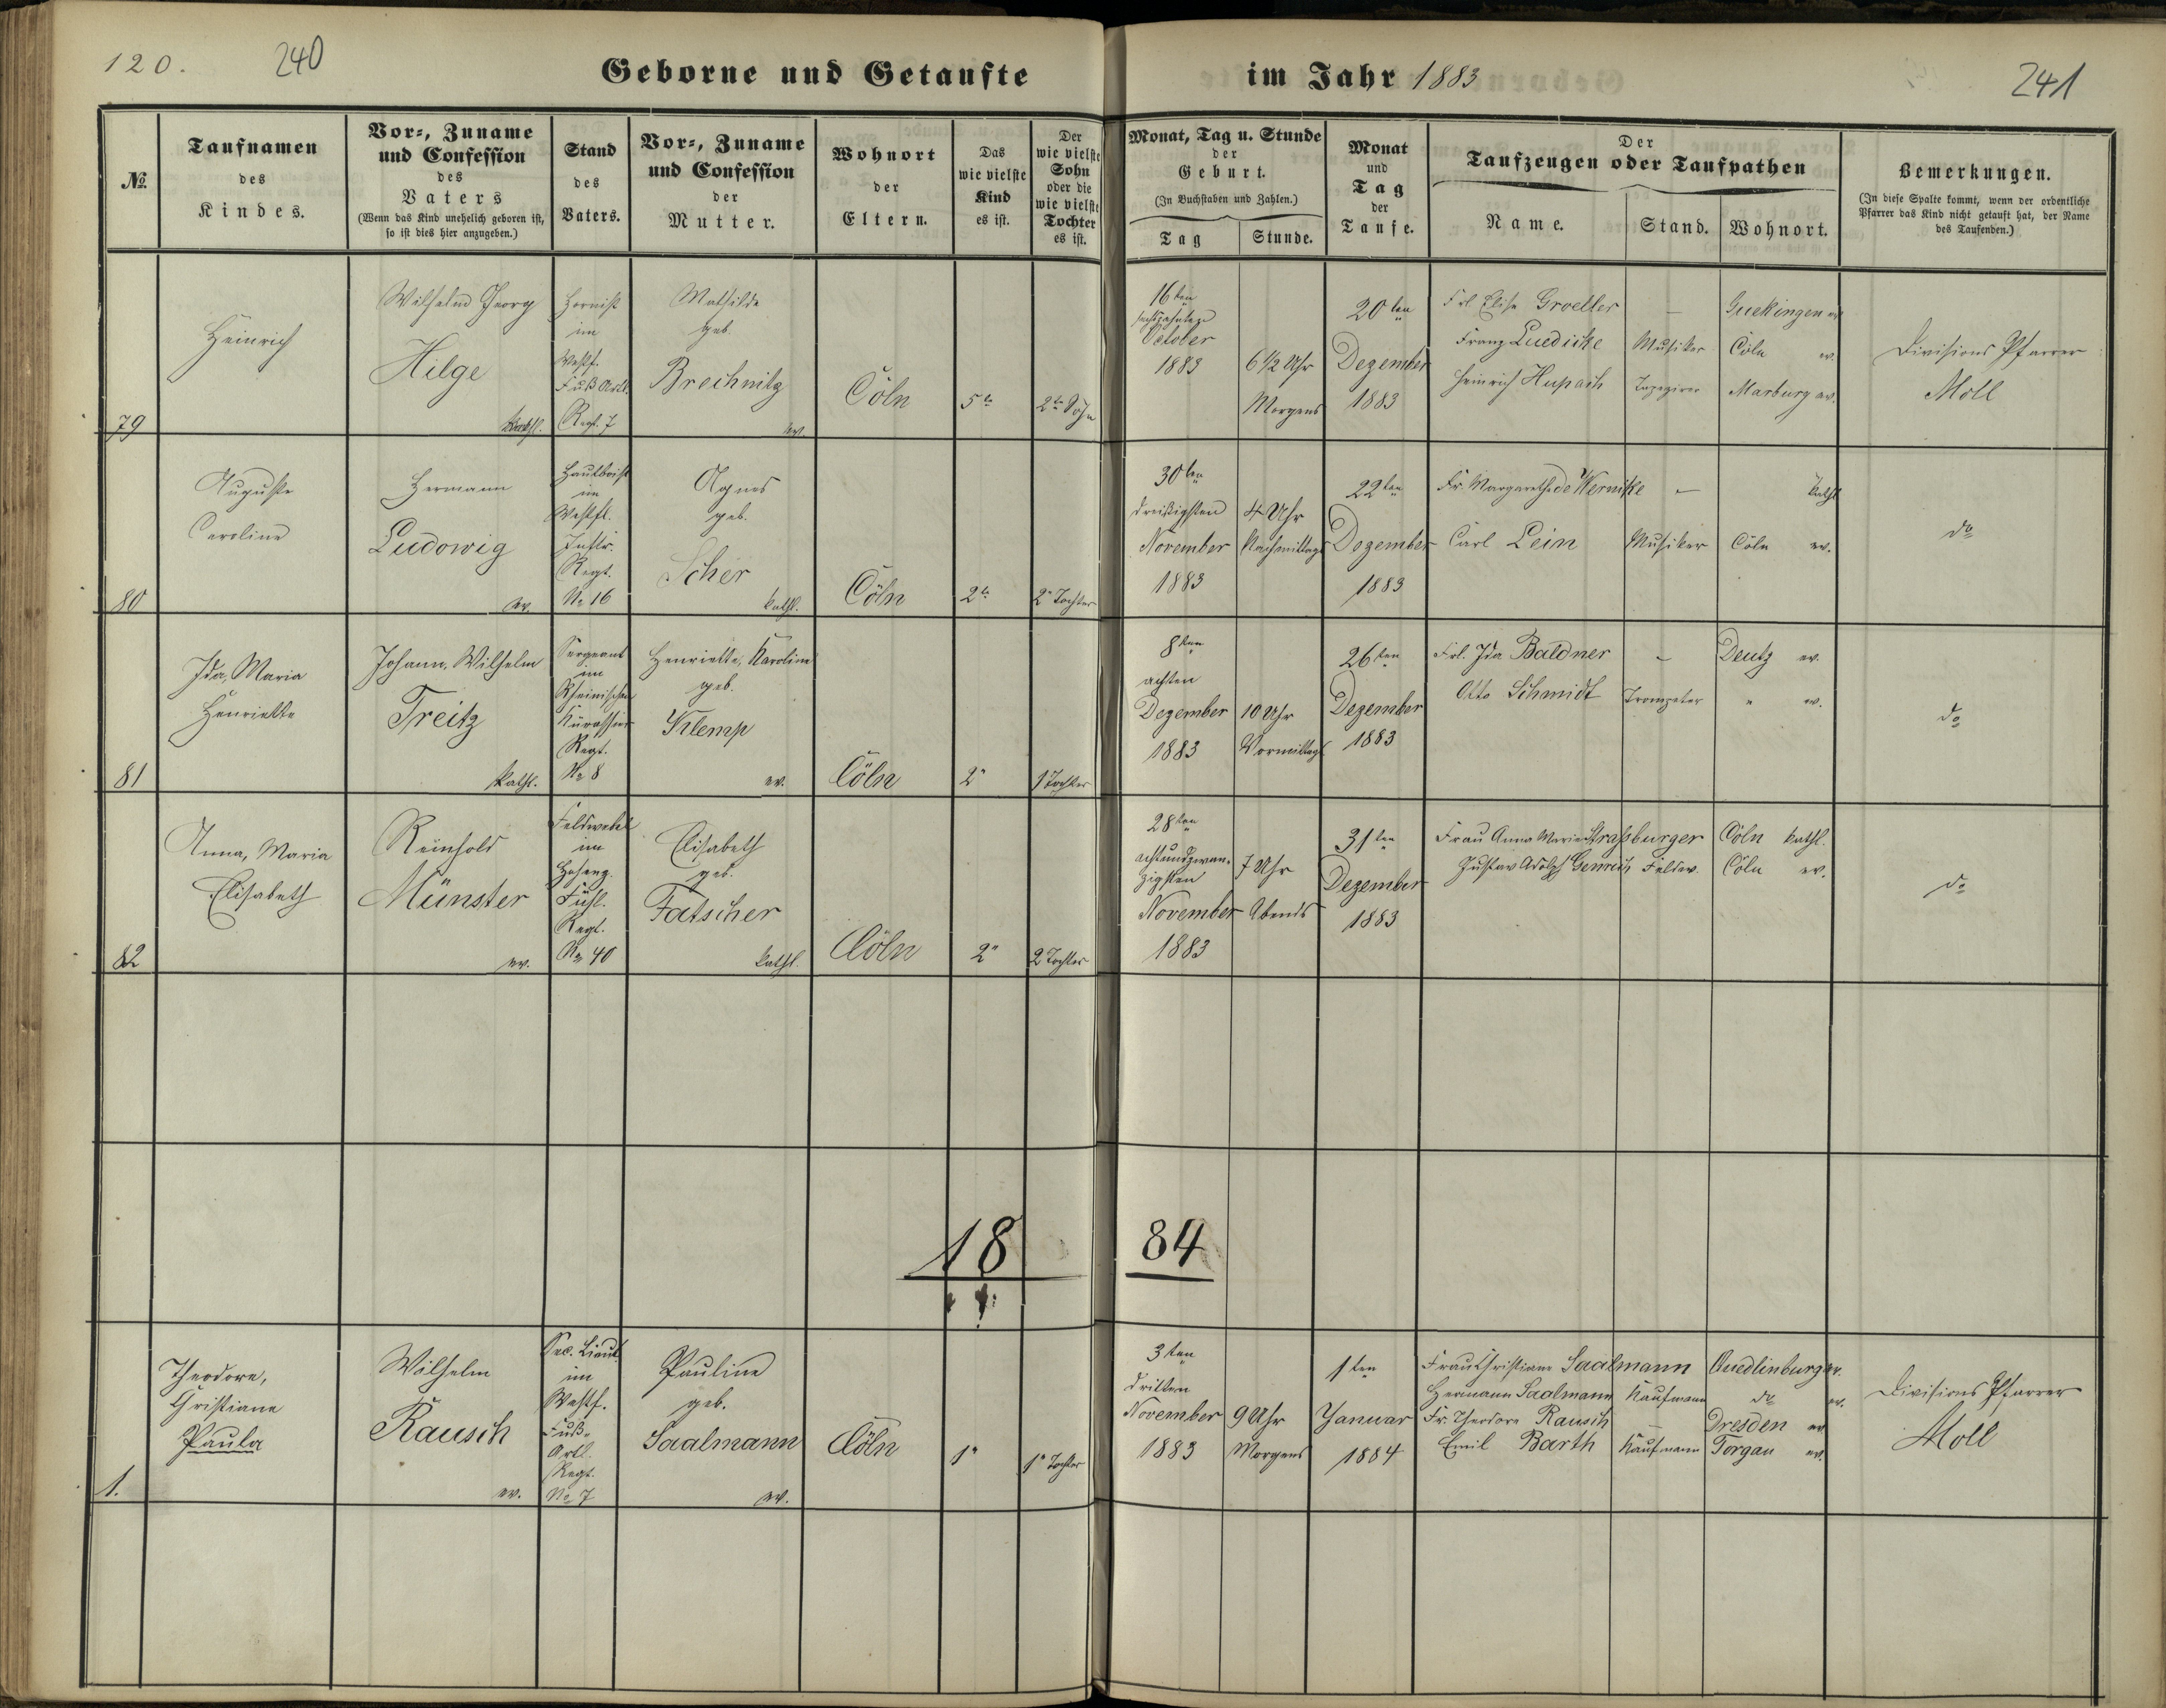 120.
240
Geborne und Getaufte
im Jahr 1883
241
№.
Taufnamen
des
Kindes.
Vor-, Zuname
und Confession
des
Vaters
(Wenn das Kind unehelich geboren ist,
so ist dies hier anzugeben.)
Stand
des
Vaters.
Vor-, Zuname
und Confession
der
Mutter.
Wohnort
der
Eltern.
Das
wie vielste
Kind
es ist.
Der
wie vielste
Sohn
oder die
wie vielste
Tochter
es ist.
Monat, Tag u. Stunde
der
Geburt.
(In Buchstaben und Zahlen.)
Tag
Stunde.
Monat
und
Tag
der
Taufe.
Der
Taufzeugen oder Taufpathen
Name.
Stand.
Wohnort.
Bemerkungen.
(In diese Spalte kommt, wenn der ordentliche
Pfarrer das Kind nicht getauft hat, der Name
des Taufenden.)
79
Heinrich
Wilhelm Georg
Hilge
kathl.
Hornist
im
Westf.
Fuß Artl.
Regt. 7
Mathilde
geb.
Brechnitz
ev.
Cöln
5te
2te Sohn
16ten
sechszehnten
October
1883
6 1/2 Uhr
Morgens
20ten
Dezember
1883
Frl. Elise Groeller — Guekingen ev.
Franz Luedicke Musiker Cöln ev.
Heinrich Hupach Tapezirer Marburg ev.
Divisions Pfarrer
Moll
80
Auguste
Caroline
Hermann
Ludowig
ev.
Hautboist
im
Westfl.
Inftr.
Regt.
No 16
Agnes
geb.
Scher
kathl.
Cöln
2te
2te Tochter
30ten
dreißigsten
November
1883
4 Uhr
Nachmittags
22ten
Dezember
1883
Fr. Margarethe de Wernicke — kathl.
Carl Lein Musiker Cöln ev.
do
81
Ida, Maria
Henriette
Johann, Wilhelm
Treitz
kathl.
Sergeant
im
Rheinischen
Kürassier
Regt.
No 8
Henriette, Karoline
geb.
Klemp
ev.
Cöln
2"
1 Tochter
8ten
achten
Dezember
1883
10 Uhr
Vormittags
26ten
Dezember
1883
Frl. Ida Baldner — Deutz ev.
Otto Schmidt Trompeter " ev.
do
82
Anna, Maria
Elisabeth
Reinhold
Münster
ev.
Feldwebel
im
Hohenz.
Füsl.
Regt.
No 40
Elisabeth
geb.
Fatscher
kathl.
Cöln
2"
2 Tochter
28ten
achtundzwan-
zigsten
November
1883
7 Uhr
Abends
31ten
Dezember
1883
Frau Anna Maria Straßburger Cöln kathl.
Gustav Adolph Genrich Feldw. Cöln ev.
do
18 84
1.
Theodore,
Christiane
Paula
Wilhelm
Rausch
ev.
Sec. Lieut.
im
Westf.
Fuß-
Artl.
Regt.
No 7
Pauline
geb.
Saalmann
ev.
Cöln
1"
1" Tochter
3ten
dritten
November
1883
9 Uhr
Morgens
1ten
Januar
1884
Frau Christiane Saalmann Quedlinburg ev.
Hermann Saalmann Kaufmann do ev.
Fr. Theodore Rausch — Dresden ev.
Emil Barth Kaufmann Torgau ev.
Divisions Pfarrer
Moll